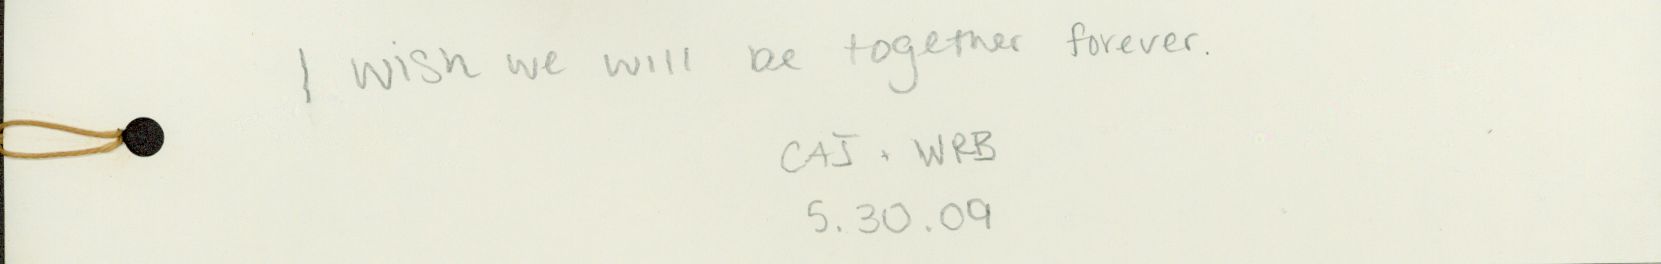 I wish we will be together forever.
CAJ + WRB
5.30.09